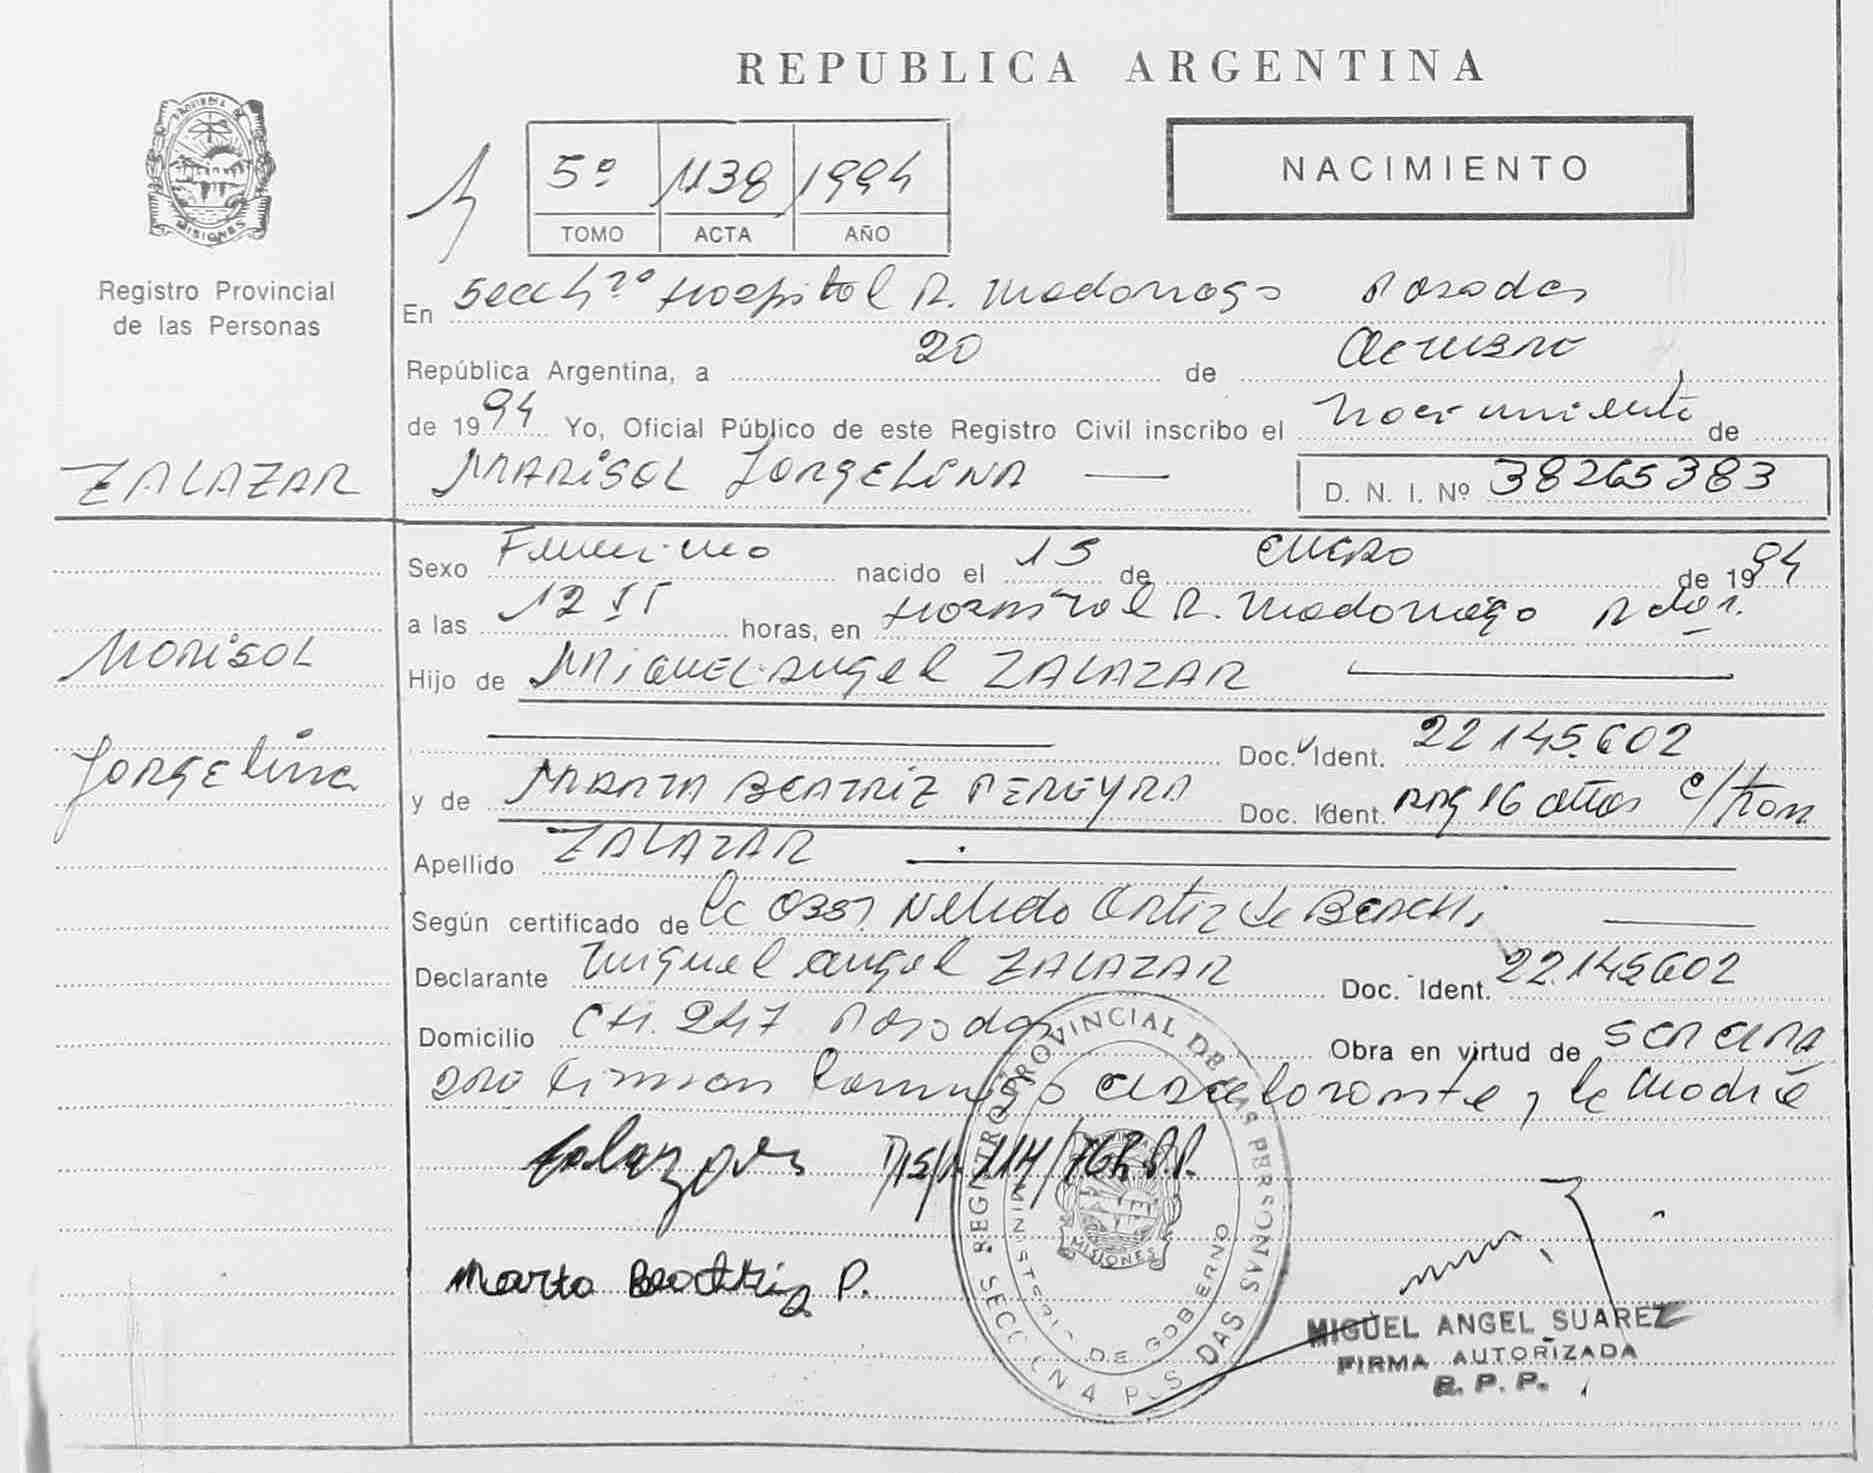 REPUBLICA ARGENTINA
NACIMIENTO
5º 1138 1994
TOMO ACTA AÑO
MISIONES
Registro Provincial
de las Personas
En Secc 4ª Hospital R. Madariaga Posadas
República Argentina, a 20 de Octubre
de 1994 Yo, Oficial Público de este Registro Civil inscribo el nacimiento de
ZALAZAR
MARISOL JORGELINA
D. N. I. Nº 38265383
Sexo Femenino nacido el 15 de enero de 1994
a las 12 horas, en Hospital R. Madariaga Pdas.
Marisol
Hijo de MIGUEL Angel ZALAZAR
Jorgelina
Doc. Ident. 22.145.602
y de MARTA BEATRIZ PEREYRA Doc. Ident. 16 años
Apellido ZALAZAR
Según certificado de la Obst. Nelida Ortiz de
Declarante Miguel Angel ZALAZAR Doc. Ident. 22.145602
Domicilio Ch. 247 Posadas Obra en virtud de ser el pa
dre firman conmigo el declarante y la Madre
Zalazar Disp. 114/76
Marta Beatriz P.
REGISTRO PROVINCIAL DE LAS PERSONAS
MINISTERIO DE GOBIERNO
MISIONES
SECCION 4 POSADAS
MIGUEL ANGEL SUAREZ
FIRMA AUTORIZADA
R. P. P.